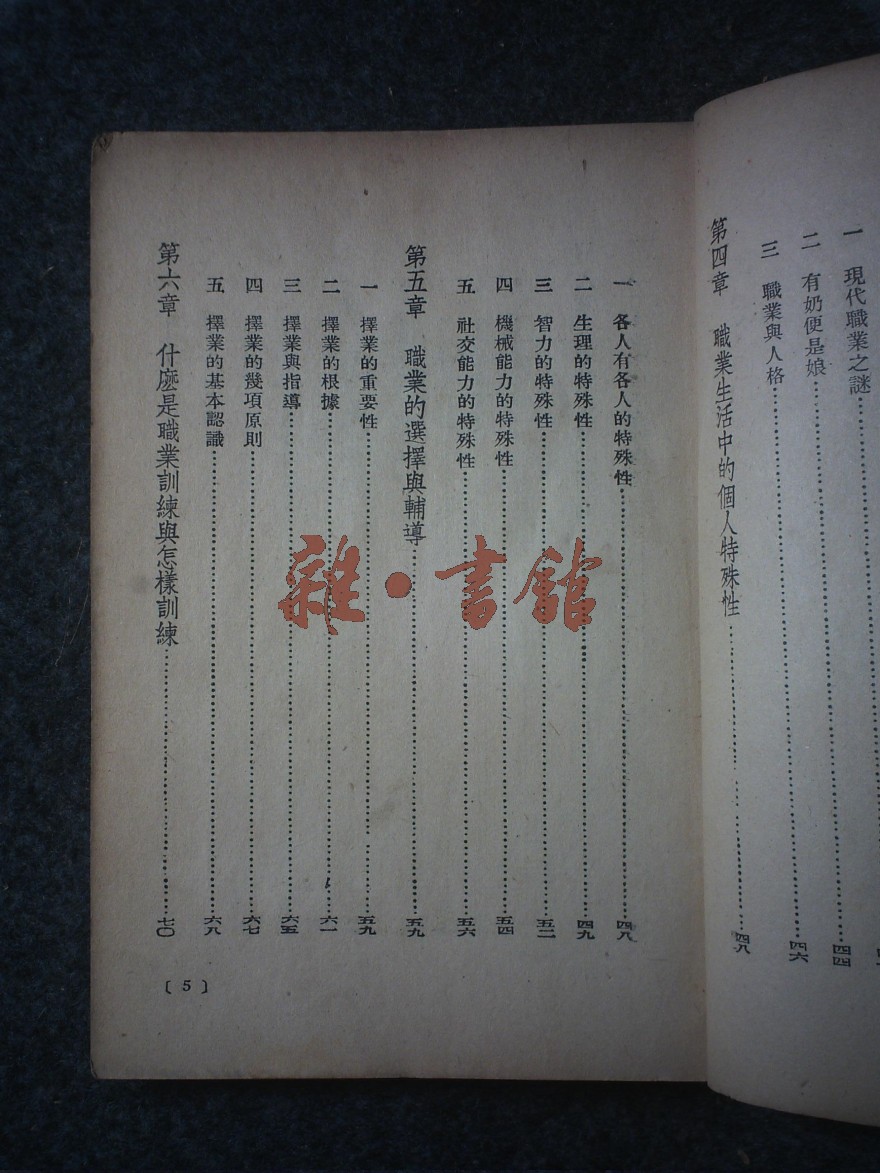 一 現代職業之謎
二 有奶便是娘 四四
三 職業與人格 四六
第四章 職業生活中的個人特殊性 四八
一 各人有各人的特殊性 四八
二 生理的特殊性 四九
三 智力的特殊性 五二
四 機械能力的特殊性 五四
五 社交能力的特殊性 五六
第五章 職業的選擇與輔導 五九
一 擇業的重要性 五九
二 擇業的根據 六一
三 擇業與指導 六五
四 擇業的幾項原則 六七
五 擇業的基本認識 六八
第六章 什麼是職業訓練與怎樣訓練 七〇
〔5〕
雜·書館